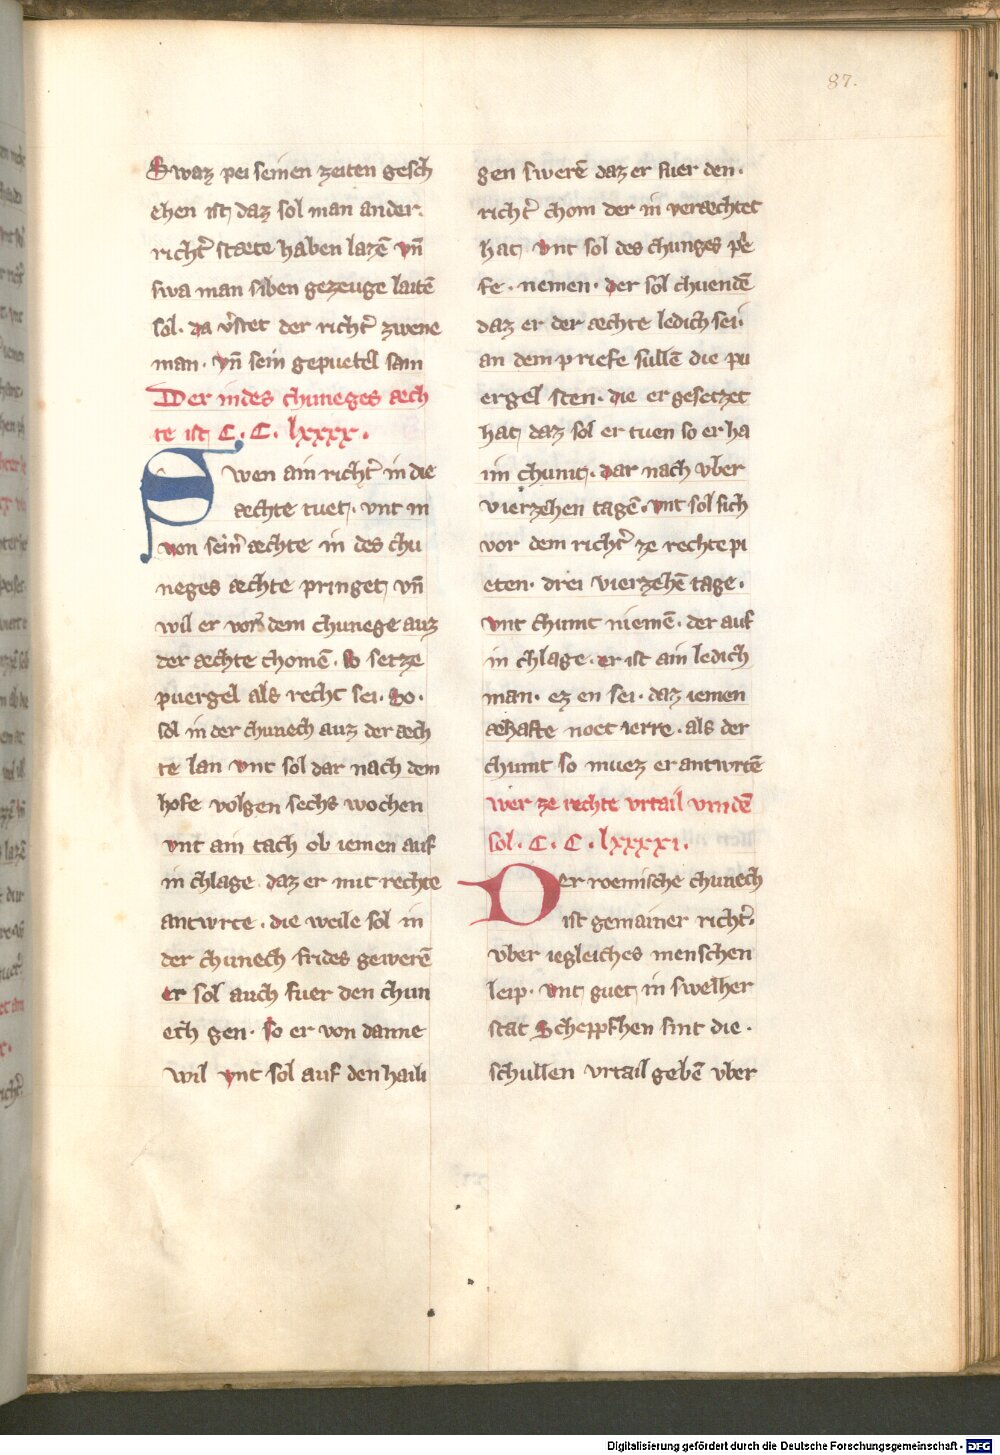 87.
Swaz pei seinen zeiten gesch
ehen ist, daz sol man ander.
richt̉ staete haben lazē vn̄
swa man siben gezeuge laitē
sol. da v̉stet der richt̉ zwene
man. vn̄ sein gepuetel sam
Der in des chuneges aech
te ist C. C. lxxxx.
Swen ain richt̉ in die
aechte tuet. vnt in
von sein̉ aechte in des chu
neges aechte pringet, vn̄
wil er vor dem chunege auz
der aechte chomē. so setze
puergel als recht sei. so.
sol in der chunech auz der aech
te lan vnt sol dar nach dem
hofe volgen sechs wochen
vnt ain tach ob iemen auf
in chlage daz er mit rechte
antwrte. die weile sol in
der chunech frides gewerē
er sol auch fuer den chun
ech gen. so er von danne
wil vnt sol auf den haili
gen swerē daz er fuer den.
richt̉ chom der in veraechtet
hat, vnt sol des chunges p̉e
fe. nemen. der sol chuendē
daz er der aechte ledich sei.
an dem priefe sullē die pu
ergel sten. die er gesetzet
hat, daz sol er tuen so er ha
im chumt. dar nach vber
vierzehen tagē. vnt sol sich
vor dem richt̉ ze rechte pi
eten. drei vierzehē tage.
vnt chumt niemē. der auf
in chlage. er ist ain ledich
man. ez en sei. daz iemen
aehafte noet ierre. als der
chumt so muez er antwrtē
wer ze rechte vrtail vindē
sol. C. C. lxxxxi.
Der roemische chunech
ist gemainer richt̉.
vber iegleiches menschen
leip. vnt, guet, in swelher
stat Scheppfhen sint die.
schullen vrtail gebē vber
Digitalisierung gefördert durch die Deutsche Forschungsgemeinschaft - DFG